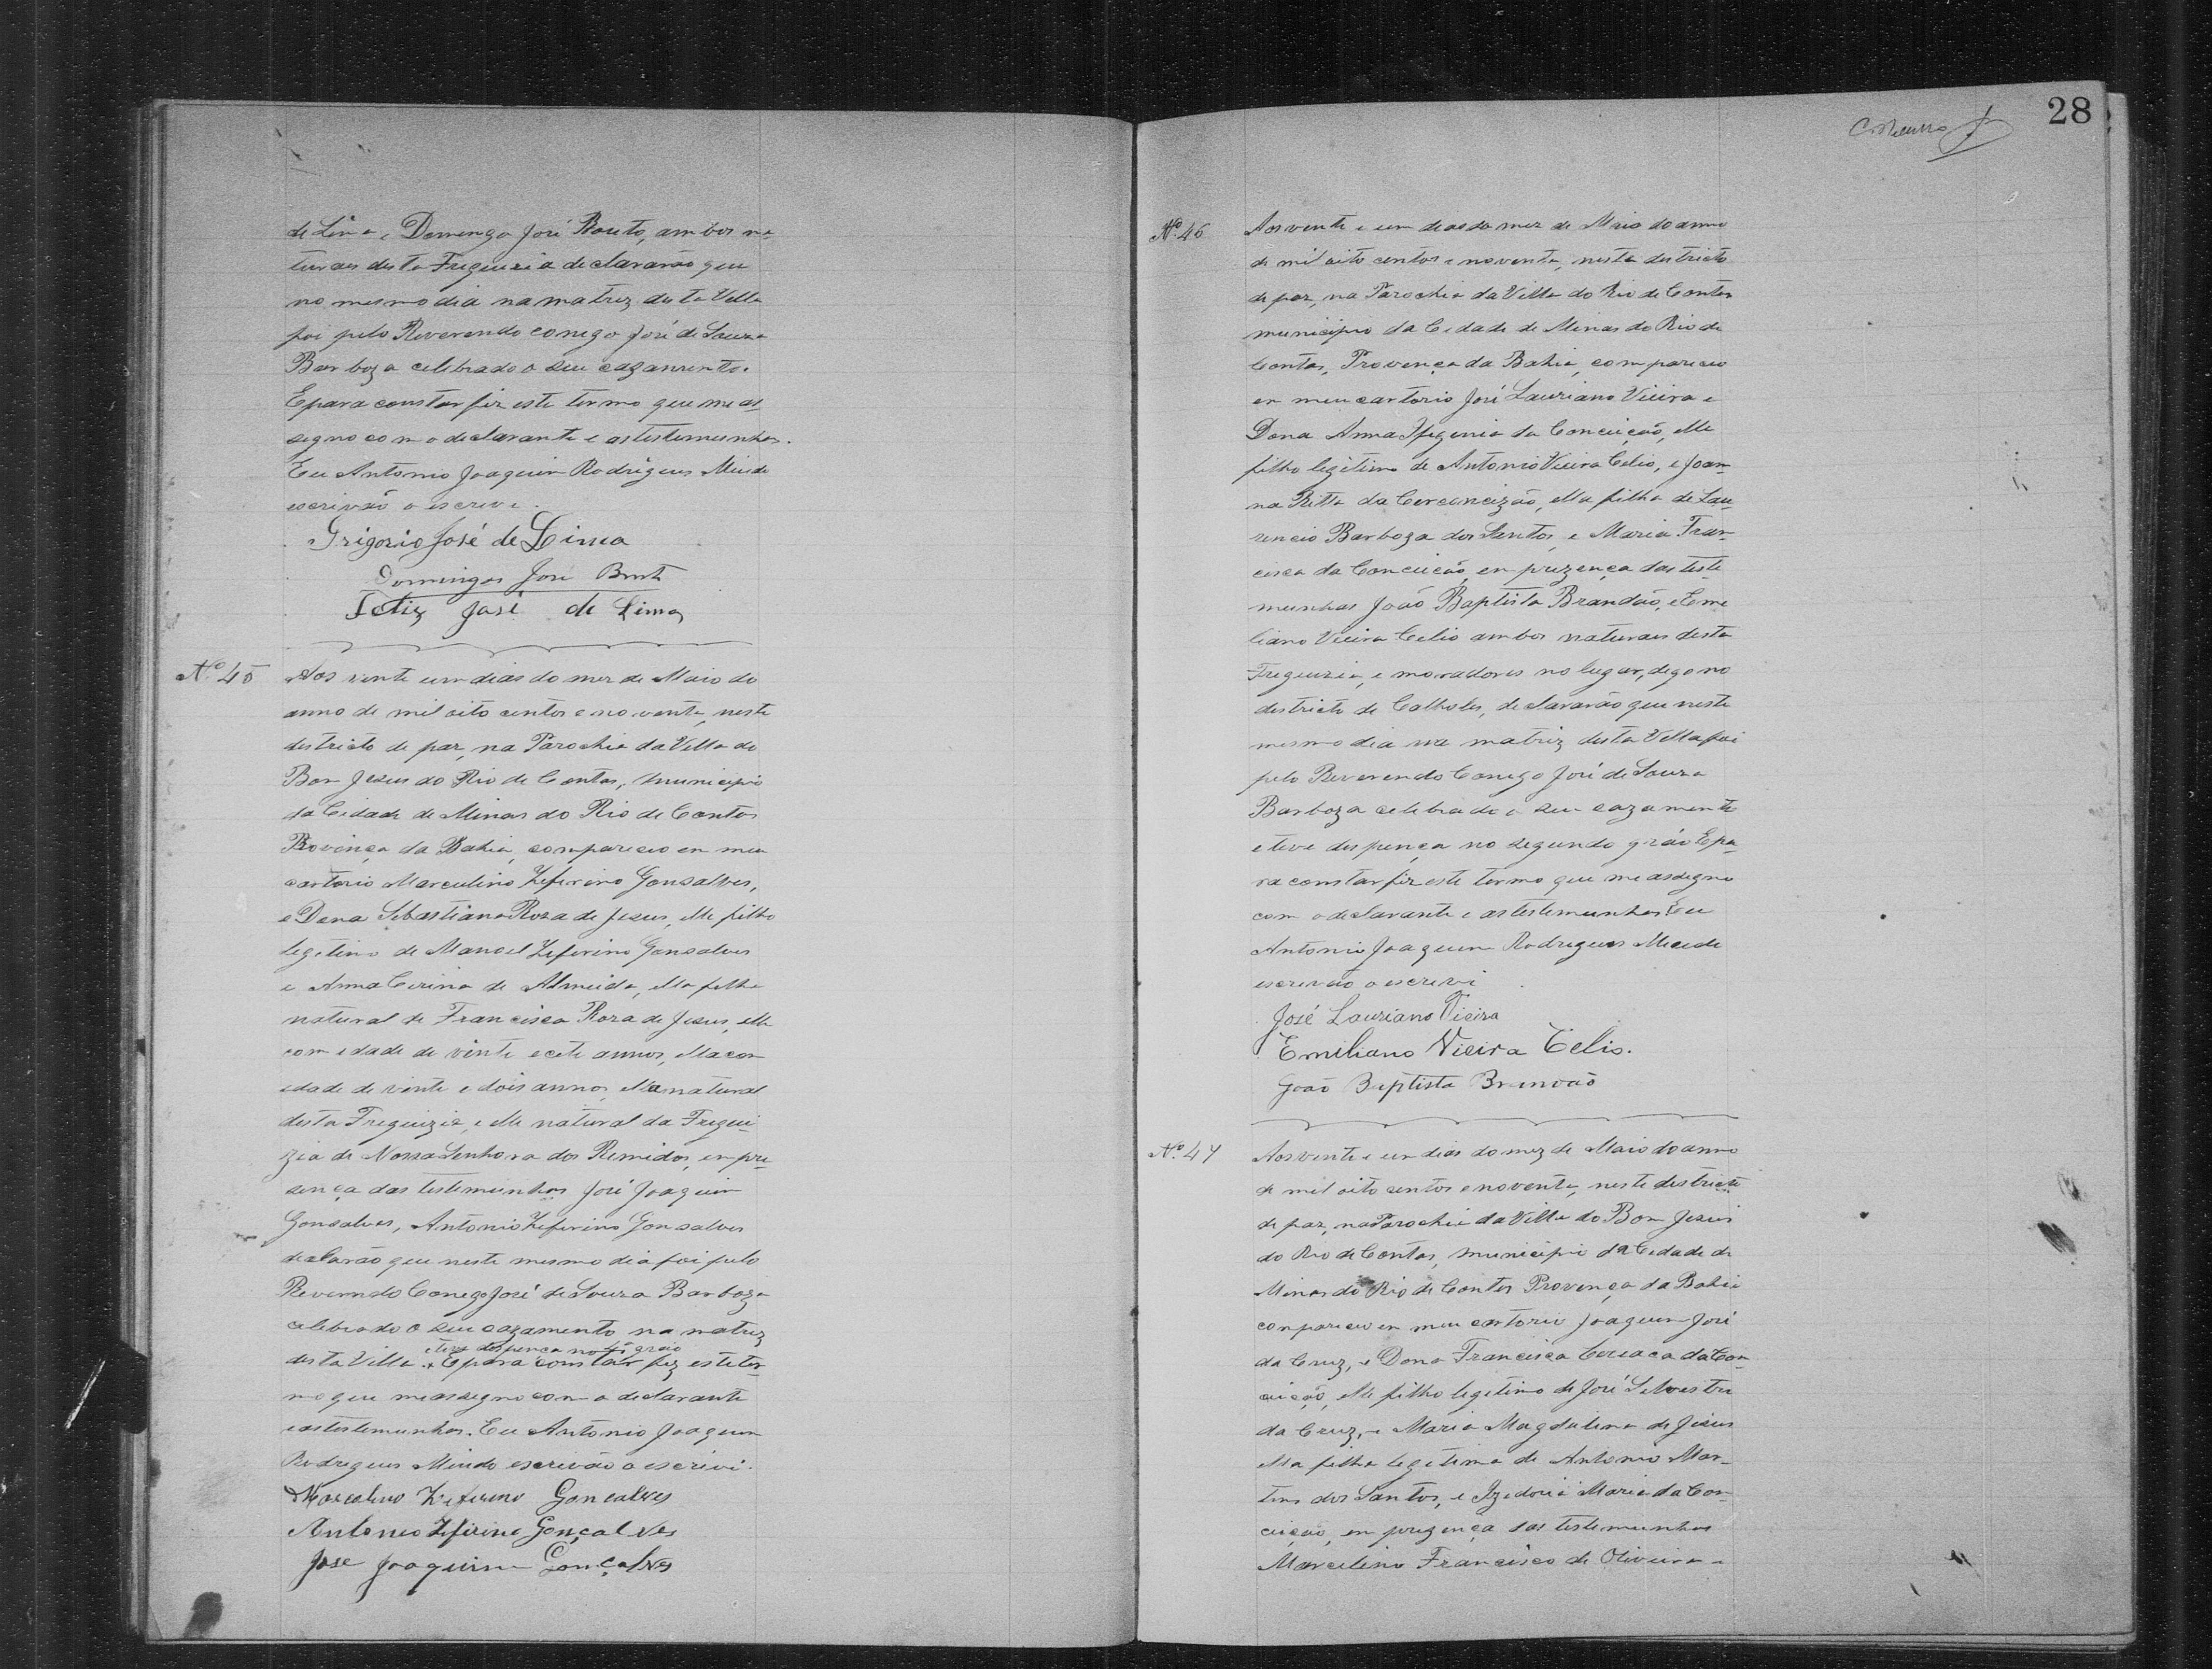 de Lima, e Domingo José Bouto, ambos na-
turaes desta Freguzia declararão que
no mesmo dia na matriz desta Villa
foi pelo Reverendo conego José de Souza
Barboza celebrado o seu cazamento.
E para constar fiz este termo que me as-
segno com o declarante e as testemunhas.
Eu Antonio Joaquim Rodrigues
escrivão o escrevi.
Grigorio José de Lima
Domingos José
José de Lima
Nº 45 Aos vente um dias do mez de Maio do
anno de mil oito centos e noventa, neste
destricto de paz, na Parochia da Villa do
Bom Jesus do Rio de Contas, Municipio
da Cidade de Minas do Rio de Contas
Provinça da Bahia, compareceo em meu
cartorio Marculino Zeferino Gonsalves,
e Dona Sebastiana Roza de Jesus, elle filho
legetimo de Manoel Zeferino Gonsalves
e Anna Cirina de Almeida, ella filha
natural de Francisca Roza de Jesus, elle
com edade de vinte e cete annos, ella com
edade de vinte e dois annos, ella natural
desta Freguizia, e elle natural da Fregui-
zia de Nossa Senhora dos Remidos, em pre-
sença das testemunhas José Joaquim
Gonsalves, Antonio Zeferino Gonsalves
declarão que neste mesmo dia foi pelo
Reverendo Conego José de Souza Barboza
celebrado o seu cazamento na matriz
e teve despença no gráo
desta Villa. E para constar fiz este ter-
mo que me assegno com o declarante
e as testemunhas. Eu Antonio Joaquim
Rodrigues escrivão o escrevi.
Marcolino Zeferino Goncalves
Antonio Zefirino Gonçalves
Jose Joaquim Gonçalves
28
Nº 46 Aos vente e um deas do mez de Maio do anno
de mil oito centos e noventa, neste destricto
de paz, na Parochia da Villa do Rio de Contas
municipio da Cidade de Minas do Rio de
Contas, Provença da Bahia, compareceo
em meu cartorio José Lauriano Vieira e
Dona Anna Ifigenia da Conceição, elle
filho legitimo de Antonio Vieira Celio, e Joan-
na Ritta da Circoncizão, ella filha de Lau-
rencio Barboza dos Santos, e Maria Fran-
cisca da Conceição, em prezença das teste
munhas João Baptista Brandão, e Eme
liano Vieira Celio ambos naturaes desta
Freguzia, e moradores no lugar, dego no
destricto de Calholes, declararão que neste
mesmo dia na matriz desta Villa foi
pelo Reverendo Conego José de Souza
Barboza celebrado o seu cazamento
e teve despença no segundo gráo E pa-
ra constar fiz este termo que me assegno
com o declarante e as testemunhas Eu
Antonio Joaquim Rodrigues
escrevão o escrevi
José Lauriano Vieira
Emiliano Vieira Celio.
João Baptista Brandão
Nº 47 Aos vente e um deas do mez de Maio do anno
de mil oito centos e noventa, neste destricto
de paz, na Parochia da Villa do Bom Jesus
do Rio de Contas, municipio da Cedade de
Minas do Rio de Contas Provença da Bahia
compareceo em meu cartorio Joaquim José
da Cruz, e Dona Francisca Ceriaca da Con-
ceição, elle filho legetimo de José Selvestre
da Cruz, e Maria Magdalena de Jesus
ella filha legetima de Antonio Mar-
tins dos Santos, e Izedoria Maria da Con-
ceição, em prezença das testemunhas
Marcelino Francisco de Oliveira e